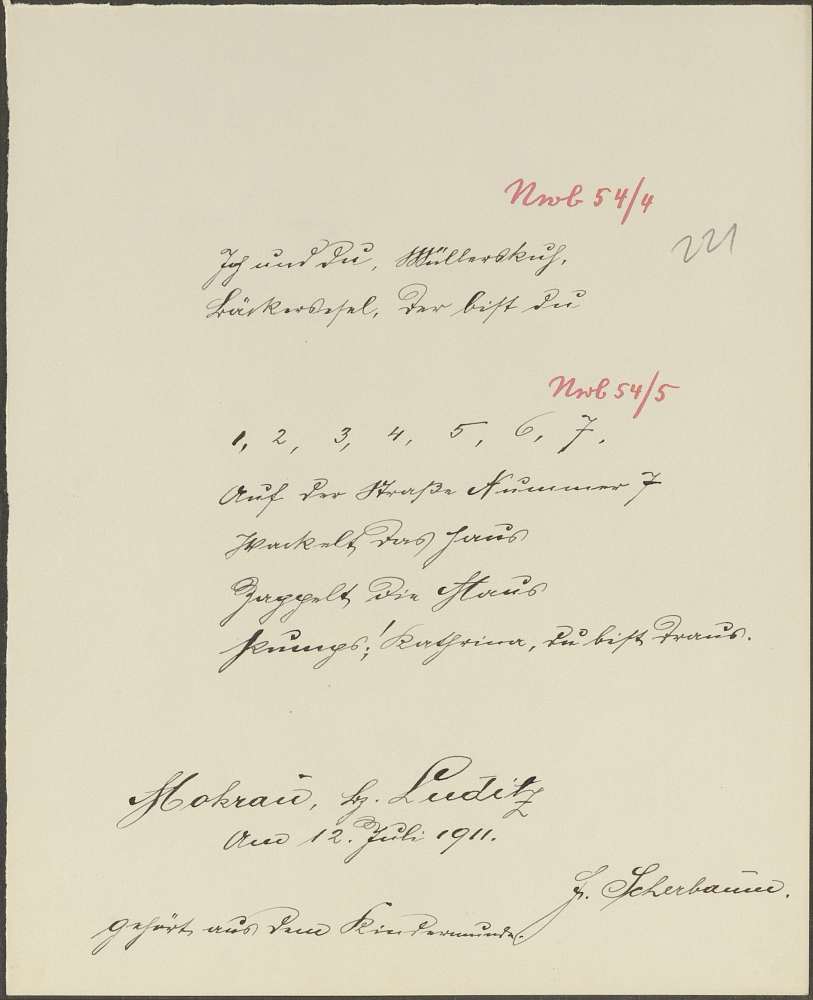 Nwb 54/4
221
Ich und Du, Müllerskuh,
Bäckersesel, der bist du
Nwb 54/5
1, 2, 3, 4, 5, 6, 7,
Auf der Straße Nummer 7
Wackelt das Haus
Zappelt die Maus
Pumps! Kathrina, du bist draus.
Mokrau, Bz. Luditz
Am 12. Juli 1911.
F. Scherbaum.
gehört aus dem Kindermunde.